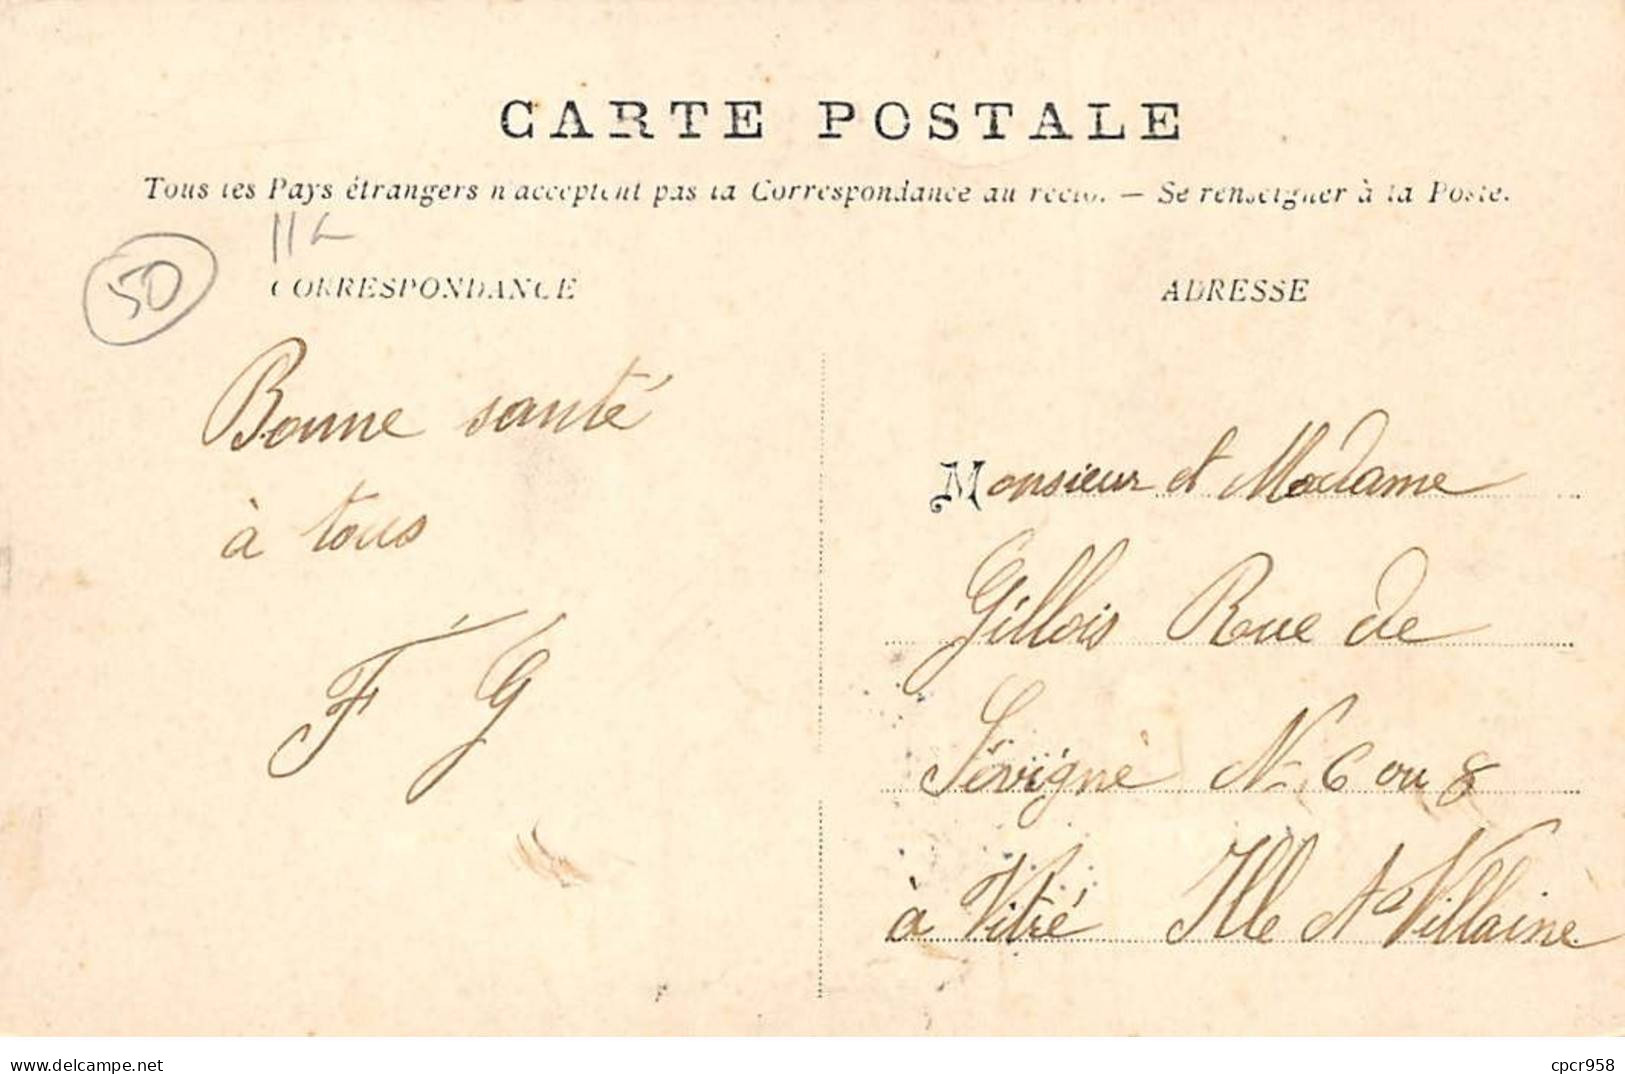 CARTE POSTALE
Tous les Pays étrangers n'acceptent pas la Correspondance au recto. — Se renseigner à la Poste.
50
CORRESPONDANCE
ADRESSE
Bonne santé
à tous
F G
Monsieur et Madame
Gillois Rue de
Sévigné N- 6 ou 8
à Vitré Ille et Villaine
www.delcampe.net
cpcr958